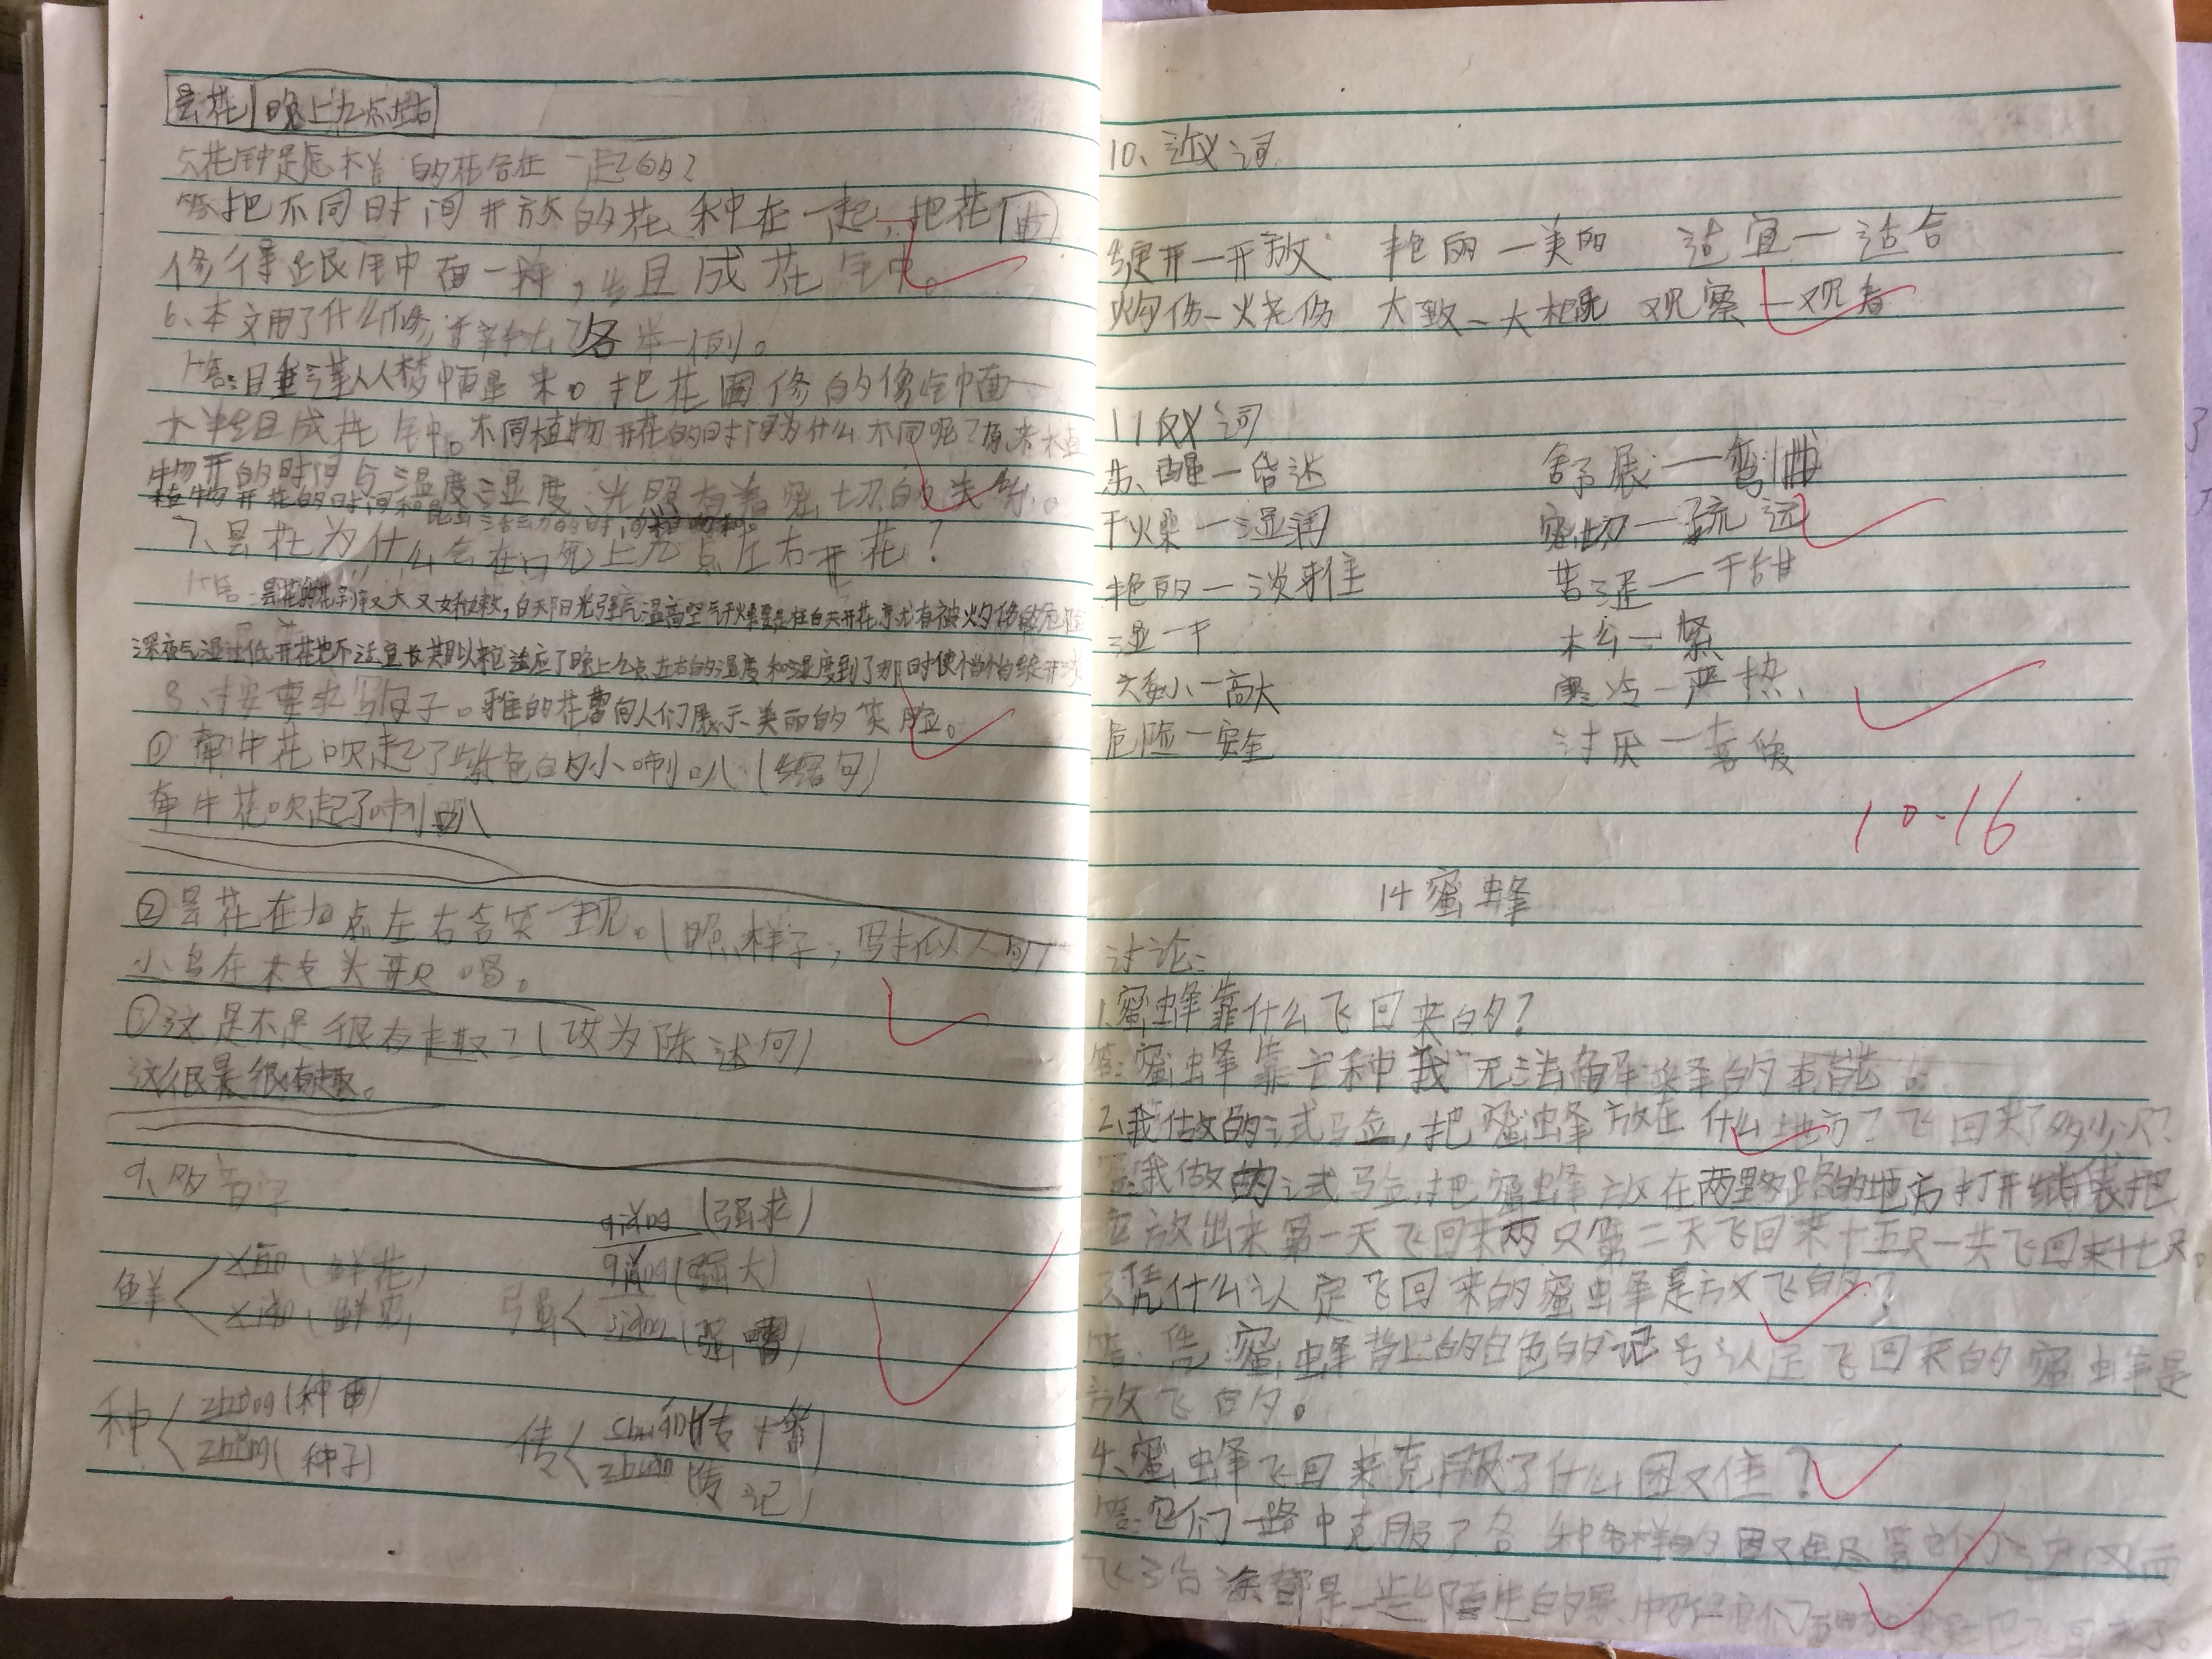 昙花 晚上九点左右
5、花钟是怎样的花合在一起的?
答:把不同时间开放的花种在一起,把花圃
修得跟钟面一样,组成花钟。
6、本文用了什么修辞 各举一例。
答: 人梦中醒来。把花圃修的像钟面一
样组成花钟。不同植物开花的时间为什么不同呢?原来植
物开的时间与温度湿度光照有着密切的关系。
植物开花的时间和昆虫活动的时间
7、昙花为什么会在晚上九点左右开花?
答:昙花的花 又大又娇嫩,白天阳光强气温高空气干燥要是在白天开花就有被灼伤的危险
深夜气温过低开花也不适宜长期以来它适应了晚上九点左右的温度和湿度到了那时便悄悄绽开
8、按要求写句子。 的花 向人们展示美丽的笑脸。
①牵牛花吹起了紫色的小喇叭(缩句)
牵牛花吹起了喇叭
②昙花在九点左右含笑一现。(照样子,写拟人句)
小鸟在枝头歌唱。
③这是不是很有趣?(改为陈述句)
这很是很有趣。
9、多音字
鲜 xiān(鲜花) 强 qiǎng(强求)
xiǎn(鲜见) qiáng(强大)
jiàng(强 )
种 zhòng(种田) 传 chuán(传播)
zhǒng(种子) zhuàn(传记)
10、近义词
绽开—开放 艳丽—美丽 适宜—适合
灼伤—火烧伤 大致—大概 观察—观看
11反义词
苏醒—昏迷 舒展—弯曲
干燥—湿润 密切—疏远
艳丽—淡雅 苦涩—干甜
湿—干 松—紧
矮小—高大 寒冷—严热
危险—安全 讨厌—喜
10.16
14蜜蜂
讨论:
1.蜜蜂靠什么飞回来的?
答:蜜蜂靠 种我无法解释的本能。
2、我做的试验,把蜜蜂放在什么地方?飞回来了多少只?
答:我做的试验把蜜蜂放在两里路的地方打开纸袋把
它放出来第一天飞回来两只第二天飞回来十五只一共飞回来十七只。
3、凭什么认定飞回来的蜜蜂是放飞的?
答:凭蜜蜂背上的白色的记号认定飞回来的蜜蜂是
放飞的。
4、蜜蜂飞回来克服了什么困难?
答:它们一路中克服了各种各样的困难尽管它们逆风而
飞 沿途都是一些陌生的景物但它们 飞回来了。